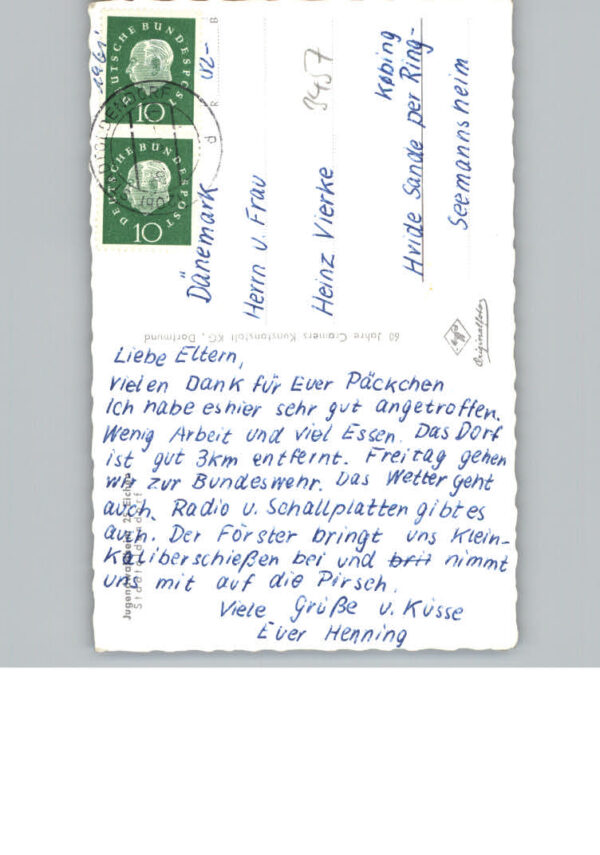 1961
DEUTSCHE BUNDESPOST
10
DEUTSCHE BUNDESPOST
10
Dänemark
Herrn u. Frau
Heinz Vierke
Hvide Sande per Ring-
Købing
Seemannsheim
3457
60 Jahre Cramers Kunstanstalt KG., Dortmund
Originalfoto
Liebe Eltern,
Vielen Dank für Euer Päckchen
Ich habe es hier sehr gut angetroffen.
Wenig Arbeit und viel Essen. Das Dorf
ist gut 3km entfernt. Freitag gehen
wir zur Bundeswehr. Das Wetter geht
auch. Radio u. Schallplatten gibt es
auch. Der Förster bringt uns Klein-
kaliberschießen bei und brit nimmt
uns mit auf die Pirsch.
Viele Grüße u. Küsse
Euer Henning